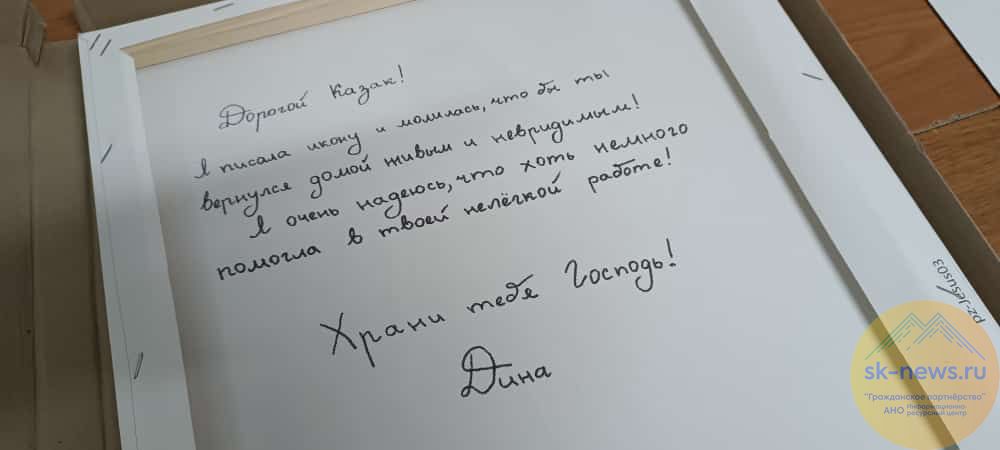 Дорогой Казак!
Я писала икону и молилась, что бы ты
вернулся домой живым и невридимым!
Я очень надеюсь, что хоть немного
помогла в твоей нелёгкой работе!
Храни тебя Господь!
Дина
pz-Jesus03
sk-news.ru
"Гражданское партнёрство"
АНО Информационно-
ресурсный центр